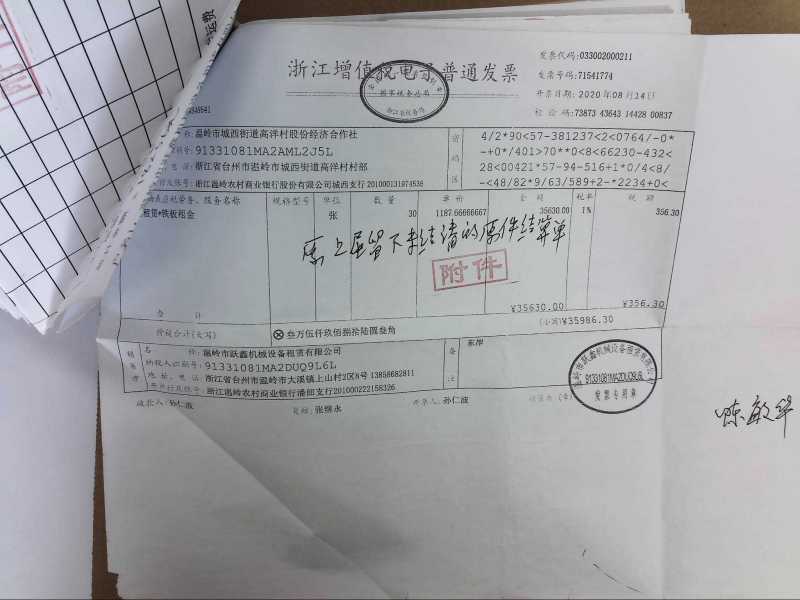 浙江增值税电子普通发票
发票代码:033002000211
发票号码:71541774
开票日期:2020年08月14日
校验码:73873 43643 14428 00837
称:温岭市城西街道高洋村股份经济合作社
91331081MA2AML2J5L
电话:浙江省台州市温岭市城西街道高洋村村部
账号:浙江温岭农村商业银行股份有限公司城西支行201000131974536
密码区
4/2*90<57-381237<2<0764/-0*
-+0*/401>70**0<8<66230-432<
28<00421*57-94-516+1*0/4<8/
-<48/82*9/63/589+2-*2234+0<
货物或应税劳务、服务名称 规格型号 单位 数量 单价 金额 税率 税额
租赁*铁板租金 张 30 1187.66666667 35630.00 1% 356.30
原上届留下未结清的原件结算单
附件
合计 ¥35630.00 ¥356.30
价税合计(大写) ⊗叁万伍仟玖佰捌拾陆圆叁角 (小写)¥35986.30
销售方
名称:温岭市跃鑫机械设备租赁有限公司
纳税人识别号:91331081MA2DUQ9L6L
地址、电话:浙江省台州市温岭市大溪镇上山村2区8号 13858682811
开户行及账号:浙江温岭农村商业银行潘郎支行201000222158326
备注
收款人:孙仁波 复核:张继永 开票人:孙仁波
温岭市跃鑫机械设备租赁有限公司
91331081MA2DUQ9L6L
发票专用章
陈敏华